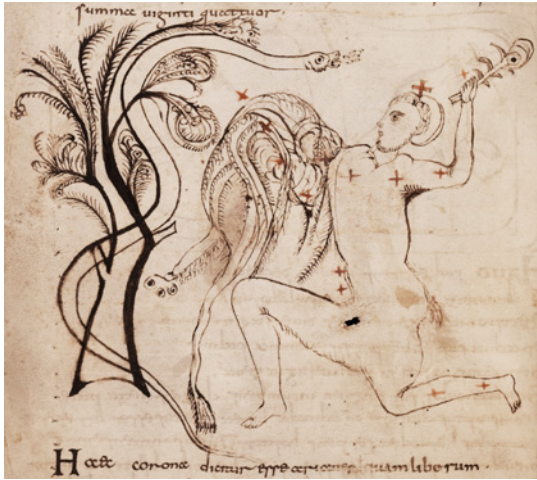 summae uiginti quattuor.
Haec corona dicitur esse quam liberum.